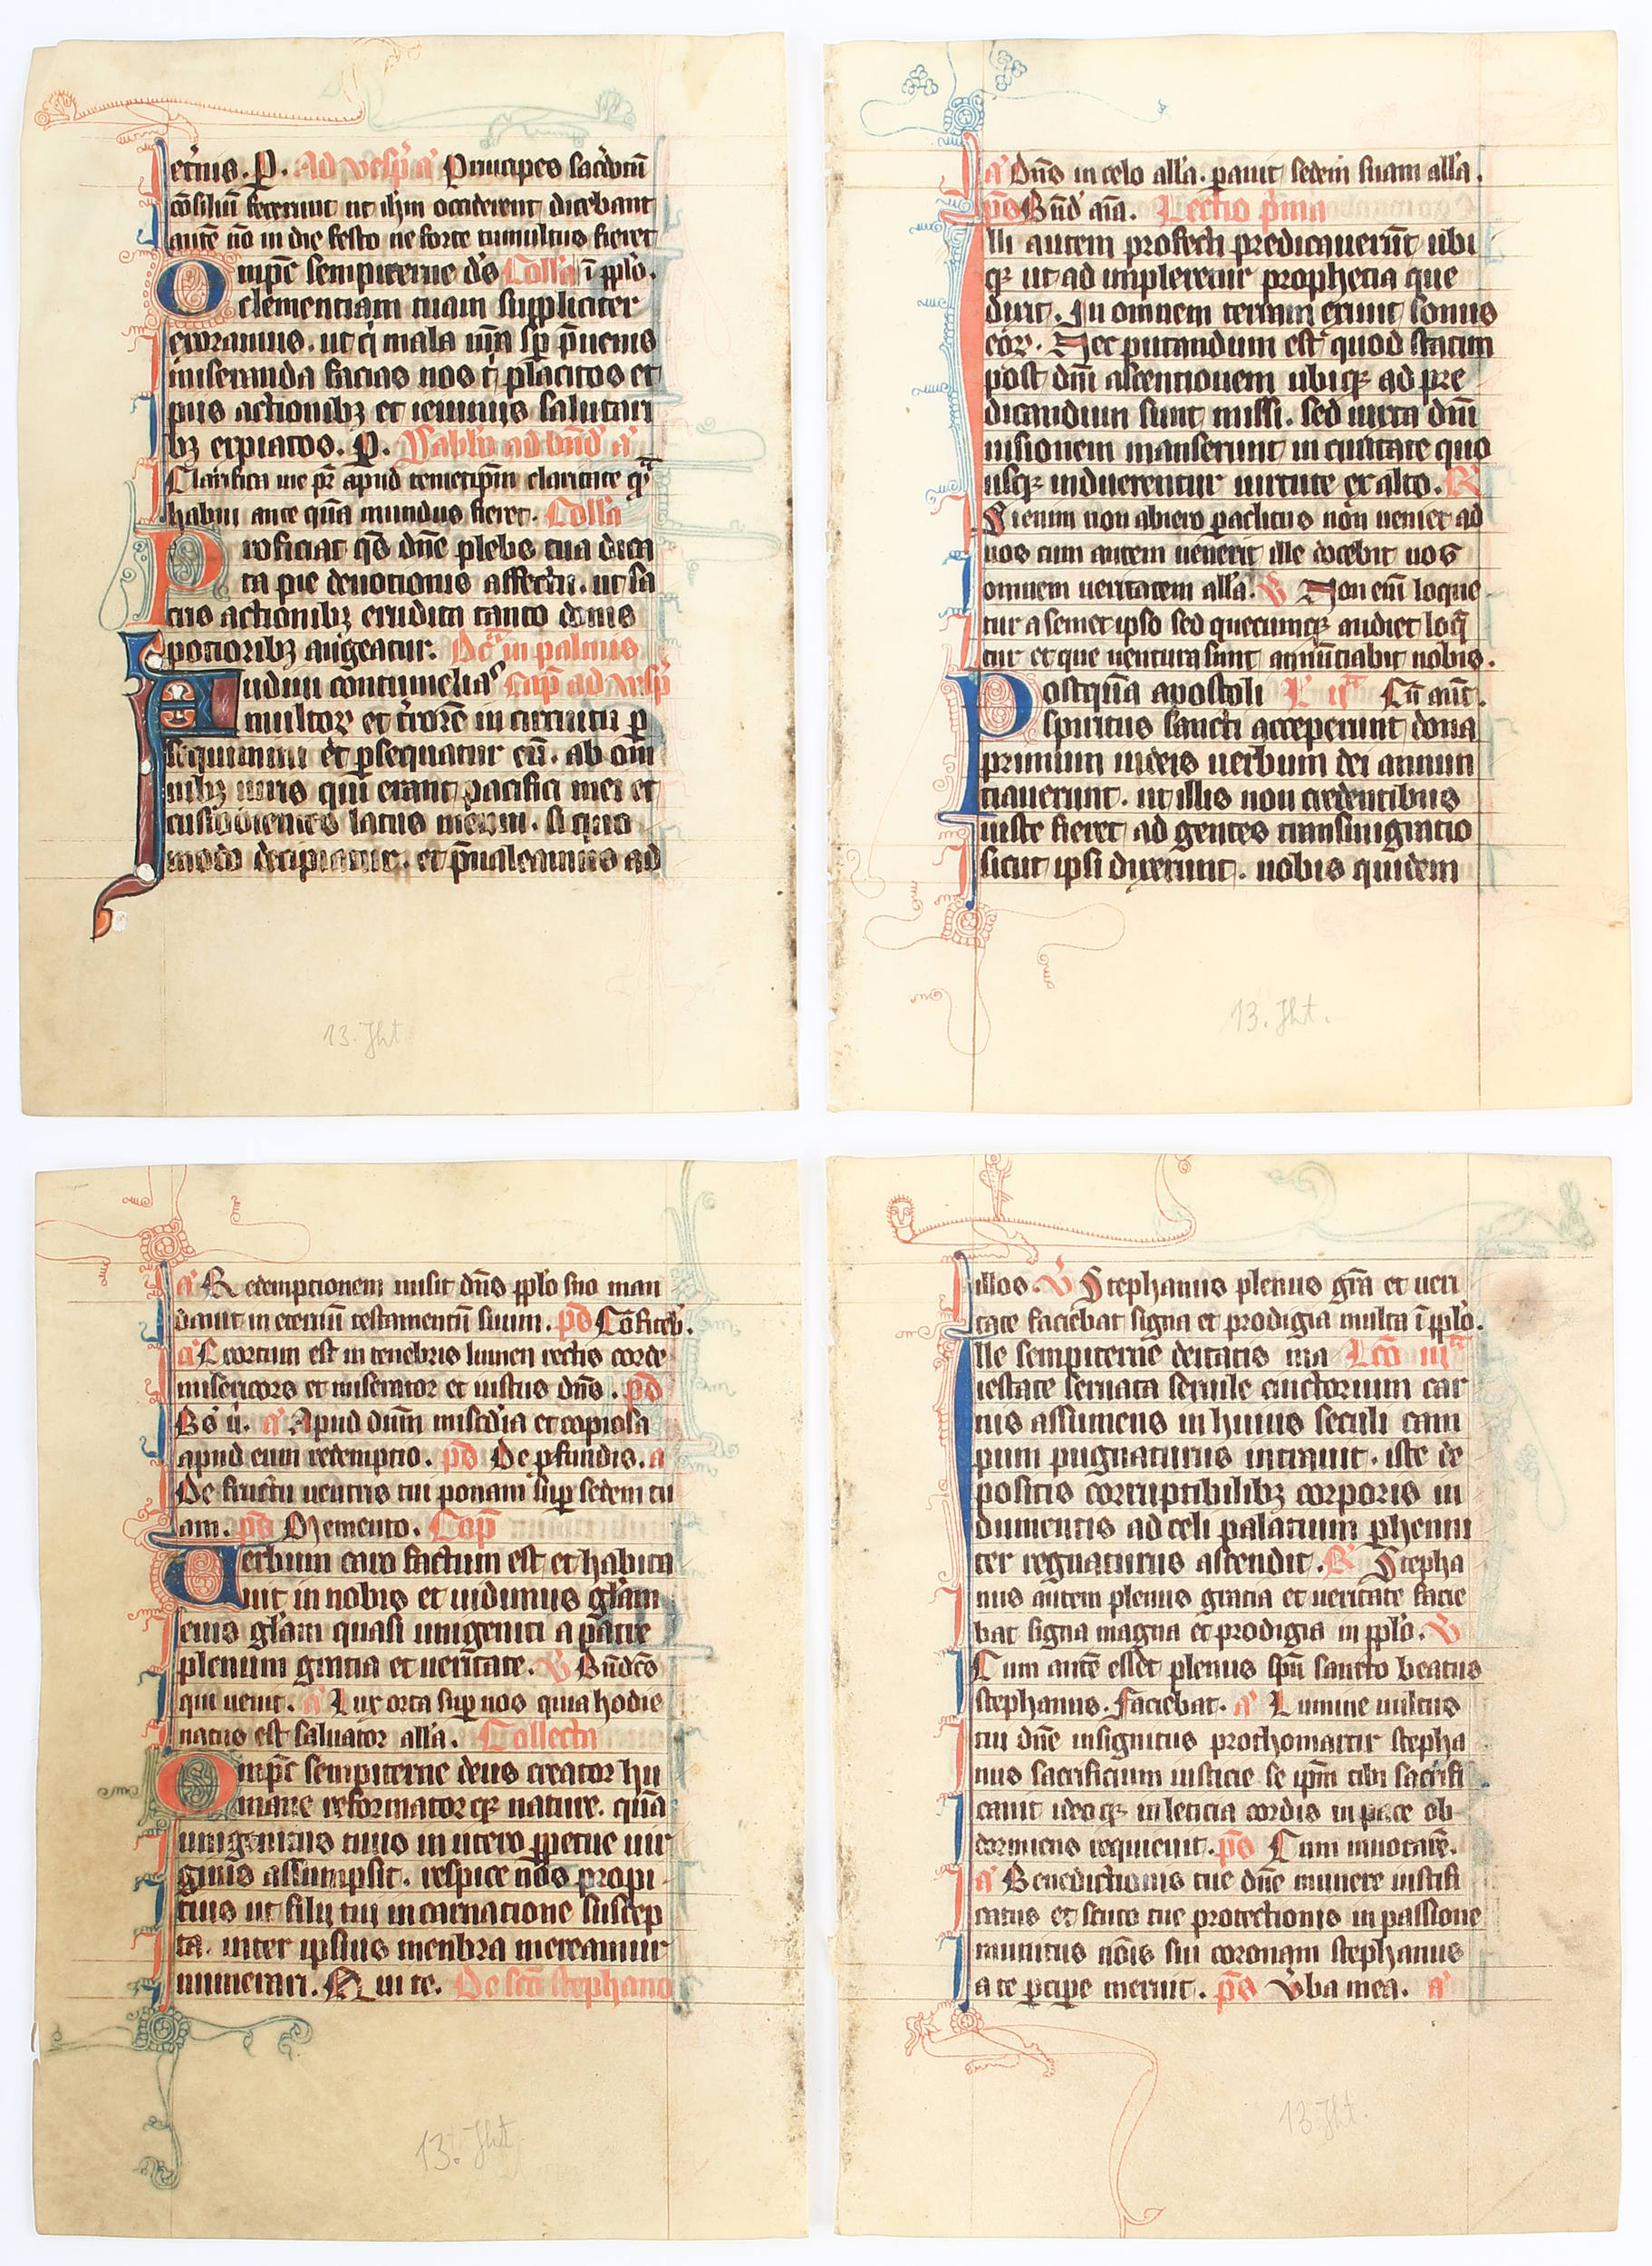 et̄nis. P. Ad vesp̄ a᷎ Principes sac̄dotū
cōsiliū fecerunt ut ihm̄ occiderent dicebant
autē nō in die festo ne forte tumultus fieret
Omp̄c sempiterne ds̄ Coll̄a ī pplo.
clementiam tuam suppliciter
exoramus. ut q̇ mala nr̄a sp̄ p̄uenis
miseranda facias nos t̄ placitos et
piis actionibꝫ et ieiuniis salutari
bꝫ expiatos. P. Sabb̄o ad bn̄d a᷎
Clarifica me pr̄ apud temetip̄m claritate qͣ
habui ante quā mundus fieret. Coll̄a
Proficiat qs̄ dn̄e plebs tua dica
ta pie deuotionis affectu. ut sa
cris actionibꝫ erudita tanto donis
potioribꝫ augeatur. Dc̄a in palmis
Audiui contumelias Cap̄ ad vesp̄
multoꝝ et t̄rorē in circuitu ꝑ
sequimini et ꝑsequamur eū. ab om̄
nibꝫ uiris qui erant pacifici mei et
custodientes latus meum. si quo
modo decipiatur. et p̄ualeamus ad
13. Jht.
a᷎ Dn̄s in celo all̄a. parauit sedem suam all̄a.
ps̄ Bn̄d aīa. Lectio p̄ma
Illi autem profecti predicauerūt ubi
qꝫ ut ad impleretur prophetia que
dicit. In omnem terram exiuit sonus
eoꝝ. Nec putandum est quod statim
post dn̄i ascentionem ubiqꝫ ad pre
dicandum sunt missi. sed iuxta dn̄i
iussionem manserunt in ciuitate quo
usqꝫ induerentur uirtute ex alto. R
Si enim non abiero paclitus non ueniet ad
uos cum autem uenerit ille docebit uos
omnem ueritatem all̄a. V Non eni loque
tur a semet ipso sed quecumqꝫ audiet loq̄
tur et que uentura sunt annūtiabit nobis.
Postquā apostoli L ij Cū aut̄.
spiritus sancti acceperunt dona
primum iudeis uerbum dei annun
tiauerunt. ut illis non credentibus
iuste fieret ad gentes transmigratio
sicut ipsi dixerunt. nobis quidem
13. Jht.
a᷎ Redemptionem misit dn̄s pplo suo man
dauit in eternū testamentū suum. ps̄ Cōfiteb̄.
a᷎ Exortum est in tenebris lumen rectis corde
misericors et miserator et iustus dn̄s. ps̄
Bs̄ ū. a᷎ Apud dūm misc̄dia et copiosa
apud eum redemptio. ps̄ De ꝓfundis. a
De fructu uentris tui ponam suꝑ sedem tu
am. ps̄ Memento. Cap̄
Uerbum caro factum est et habita
uit in nobis et uidimus gl̄am
eius gl̄am quasi unigeniti a patre
plenum gratia et ueritate. V Bn̄dc̄s
qui uenit. a᷎ Lux orta suꝑ nos quia hodie
natus est saluator all̄a. Collecta
Omp̄c sempiterne deus creator hu
mane reformatorqꝫ nature. quā
unigenitus tuus in utero ꝑpetue uir
ginis assumpsit. respice nos propi
tius ut filij tui incarnatione suscep
ta. inter ipsius menbra mereamur
numerari. Q ui te. De scō stephano
13. Jht.
illos. V Stephanus plenus gr̄a et ueri
tate faciebat signa et prodigia multa ī pplo.
Ille sempiterne deitatis ma Lcō iij
iestate seruata seruile cinctorium car
nis assumens in huius seculi cam
pum pugnaturus intrauit. iste de
positis corruptibilibꝫ corporis in
dumentis ad celi palatium ꝑhenni
ter regnaturus ascendit. R Stepha
nus autem plenus gratia et ueritate facie
bat signa magna et prodigia in pplo. V
Cum autē esset plenus spū sancto beatus
stephanus. Faciebat. a᷎ Lumine uultus
tui dn̄e insignitus prothomartir stepha
nus sacrificium iusticie se ip̄m tibi sacrifi
cauit ideoqꝫ in leticia cordis in pace ob
dormiens requieuit. ps̄ Cum inuocarē.
a᷎ Benedictionis tue dn̄e munere iustifi
catus et scuto tue protectionis in passione
munitus nōis sui coronam stephanus
a te ꝑciꝑe meruit. ps̄ Vba mea. a᷎
13. Jht.